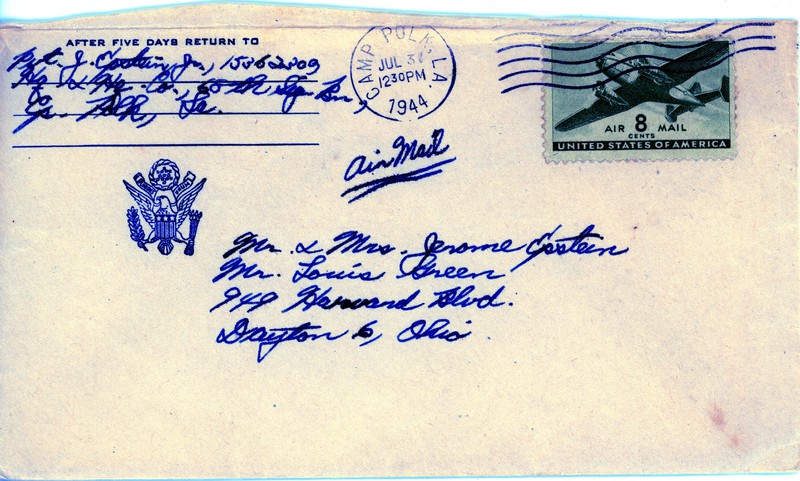 AFTER FIVE DAYS RETURN TO
Pvt. J. Epstein, Jr., 15362809
Hq. & Hq. Co., 65th Sig. Bn.,
Polk, La.
CAMP POLK, LA.
JUL 31
1230PM
1944
AIR 8 MAIL
CENTS
UNITED STATES OF AMERICA
Air Mail
Mr. & Mrs. Jerome Epstein
Mr. Louis Green
949 Harvard Blvd.
Dayton 6, Ohio